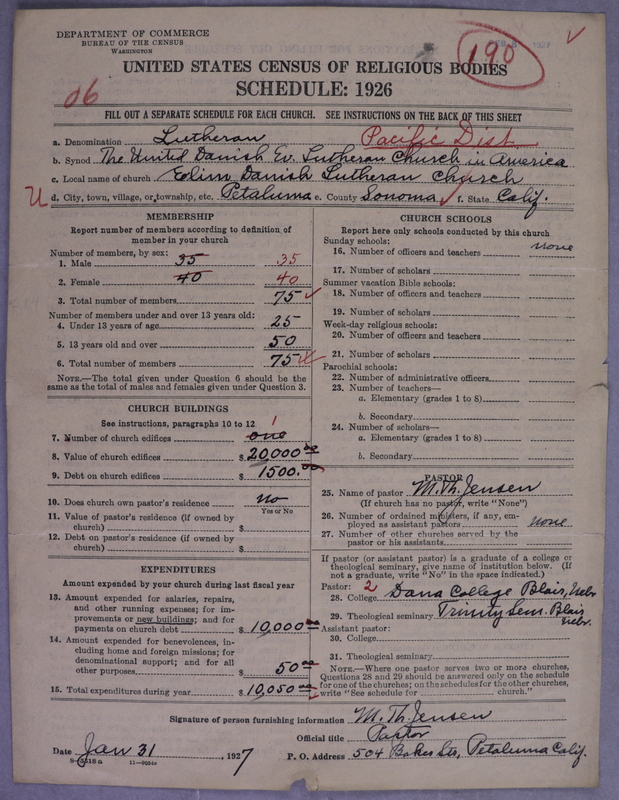 DEPARTMENT OF COMMERCE
BUREAU OF THE CENSUS
WASHINGTON
190
UNITED STATES CENSUS OF RELIGIOUS BODIES
SCHEDULE: 1926
06
FILL OUT A SEPARATE SCHEDULE FOR EACH CHURCH. SEE INSTRUCTIONS ON THE BACK OF THIS SHEET
a. Denomination Lutheran Pacific Dist.
b. Synod The United Danish Ev. Lutheran Church in America
c. Local name of church Elim Danish Lutheran Church
U d. City, town, village, or township, etc. Petaluma e. County Sonoma f. State Calif.
MEMBERSHIP
Report number of members according to definition of
member in your church
Number of members, by sex:
1. Male 35 35
2. Female 40 40
3. Total number of members 75
Number of members under and over 13 years old:
4. Under 13 years of age 25
5. 13 years old and over 50
6. Total number of members 75
NOTE.—The total given under Question 6 should be the
same as the total of males and females given under Question 3.
CHURCH BUILDINGS
See instructions, paragraphs 10 to 12
7. Number of church edifices one 1
8. Value of church edifices $ 20,000 00
9. Debt on church edifices $ 1500.00
10. Does church own pastor's residence no
Yes or No
11. Value of pastor's residence (if owned by
church) $
12. Debt on pastor's residence (if owned by
church) $
EXPENDITURES
Amount expended by your church during last fiscal year
13. Amount expended for salaries, repairs,
and other running expenses; for im-
provements or new buildings; and for
payments on church debt $ 10,000 00
14. Amount expended for benevolences, in-
cluding home and foreign missions; for
denominational support; and for all
other purposes $ 50 00
15. Total expenditures during year $ 10,050 00
CHURCH SCHOOLS
Report here only schools conducted by this church
Sunday schools:
16. Number of officers and teachers none
17. Number of scholars
Summer vacation Bible schools:
18. Number of officers and teachers
19. Number of scholars
Week-day religious schools:
20. Number of officers and teachers
21. Number of scholars
Parochial schools:
22. Number of administrative officers
23. Number of teachers—
a. Elementary (grades 1 to 8)
b. Secondary
24. Number of scholars—
a. Elementary (grades 1 to 8)
b. Secondary
PASTOR
25. Name of pastor M. Th. Jensen
(If church has no pastor, write "None")
26. Number of ordained ministers, if any, em-
ployed as assistant pastors none
27. Number of other churches served by the
pastor or his assistants
If pastor (or assistant pastor) is a graduate of a college or
theological seminary, give name of institution below. (If
not a graduate, write "No" in the space indicated.)
Pastor: 2
28. College Dana College Blair, Nebr
29. Theological seminary Trinity Sem. Blair Nebr.
Assistant pastor:
30. College
31. Theological seminary
NOTE.—Where one pastor serves two or more churches,
Questions 28 and 29 should be answered only on the schedule
for one of the churches; on the schedules for the other churches,
write "See schedule for church."
Signature of person furnishing information M. Th. Jensen
Official title Pastor
Date Jan 31, 1927 P. O. Address 504 Baker Str, Petaluma Calif.